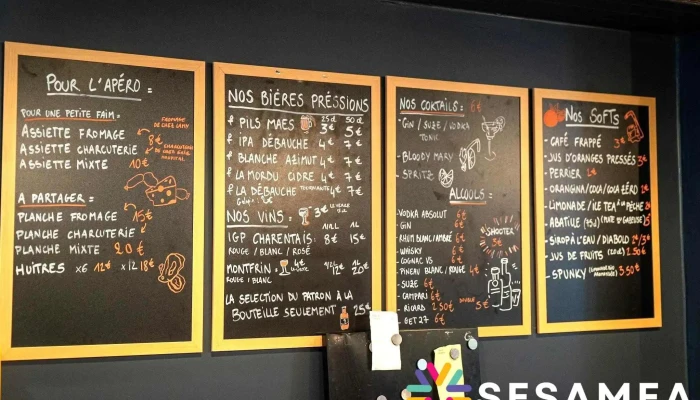 POUR L'APÉRO =
POUR UNE PETITE FAIM =
ASSIETTE FROMAGE
ASSIETTE CHARCUTERIE 8€
ASSIETTE MIXTE 10€
FROMAGE
DE CHEZ LAMY
CHARCUTERIE
À PARTAGER =
PLANCHE FROMAGE 15€
PLANCHE CHARCUTERIE
PLANCHE MIXTE 20€
HUÎTRES x6 12€ x12 18€
NOS BIÈRES PRESSIONS
25cl 50cl
PILS MAES 3€ 5€
IPA DÉBAUCHE 4€ 7€
BLANCHE AZIMUT 4€ 7€
LA MORDU CIDRE 4€ 7€
LA DÉBAUCHE 4€ 7€
NOS VINS = 3€ LE VERRE
IGP CHARENTAIS = 8€ 15€
ROUGE / BLANC / ROSÉ
MONTFRIN = 4€ 1L 20€
ROUGE / BLANC
LA SELECTION DU PATRON À LA
BOUTEILLE SEULEMENT 25€
NOS COKTAILS = 6€
- GIN / SUZE / VODKA
TONIC
- BLOODY MARY
- SPRITZ
ALCOOLS =
- VODKA ABSOLUT 6€
- GIN 6€
- RHUM BLANC/AMBRÉ 6€
- WHISKY 6€
- COGNAC VS 6€
- PINEAU BLANC/ROUGE 4€
- SUZE 6€
- CAMPARI 6€
- RICARD 2.50€ DOUBLE 5€
- GET 27 6€
SHOOTER
3€
NOS SOFTS
- CAFÉ FRAPPÉ 3€
- JUS D'ORANGES PRESSÉS 3€
- PERRIER
- ORANGINA/COCA/COCA ZÉRO
- LIMONADE / ICE TEA À LA PÊCHE 2€
- ABATILLE (75cl) (PLATE OU GAZEUSE)
- SIROP À L'EAU / DIABOLO 2€/3€
- JUS DE FRUITS 2.50€
- SPUNKY 3.50€
SESAMEA